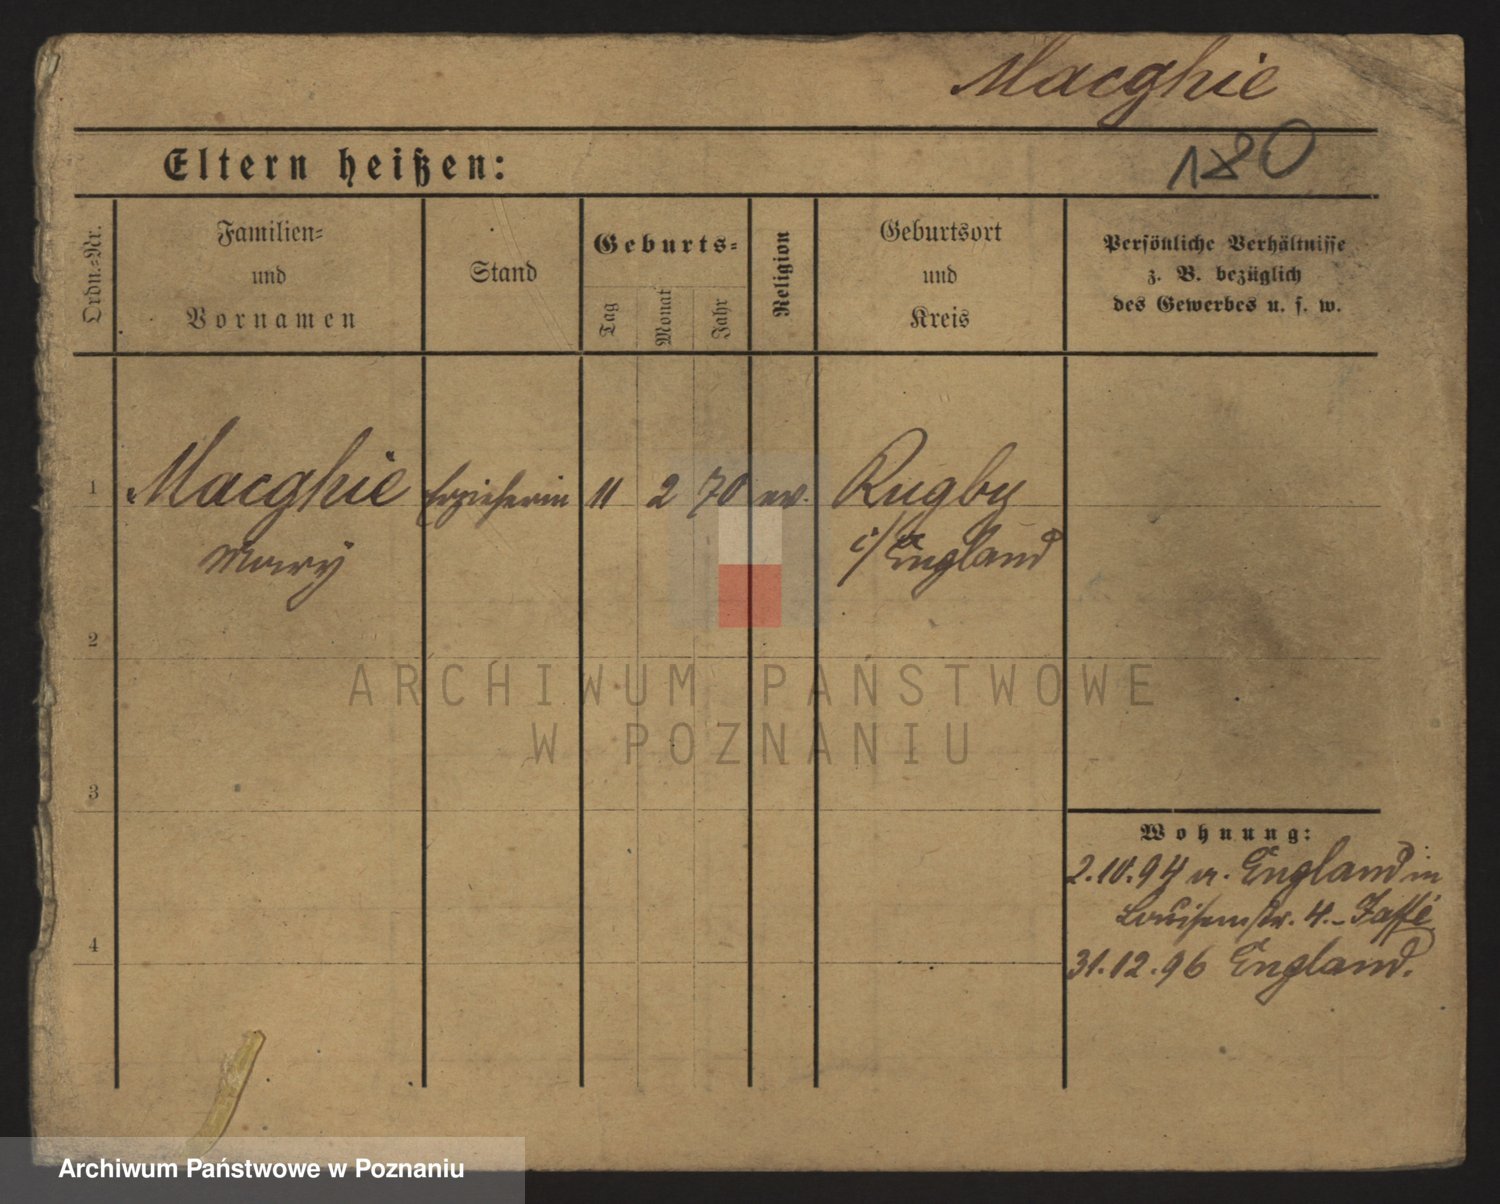 Macghie
180
Eltern heißen:
Ordn.-Nr.
Familien-
und
Vornamen
Stand
Geburts-
Tag
Monat
Jahr
Religion
Geburtsort
und
Kreis
Persönliche Verhältnisse
z. B. bezüglich
des Gewerbes u. s. w.
1 Macghie Erzieherin 11 2 70 ev. Rugby
Mary i/ England
2
3
4
Wohnung:
2.10.94 a. England in
Louisenstr. 4. Jaffé
31.12.96 England.
ARCHIWUM PAŃSTWOWE
W POZNANIU
Archiwum Państwowe w Poznaniu